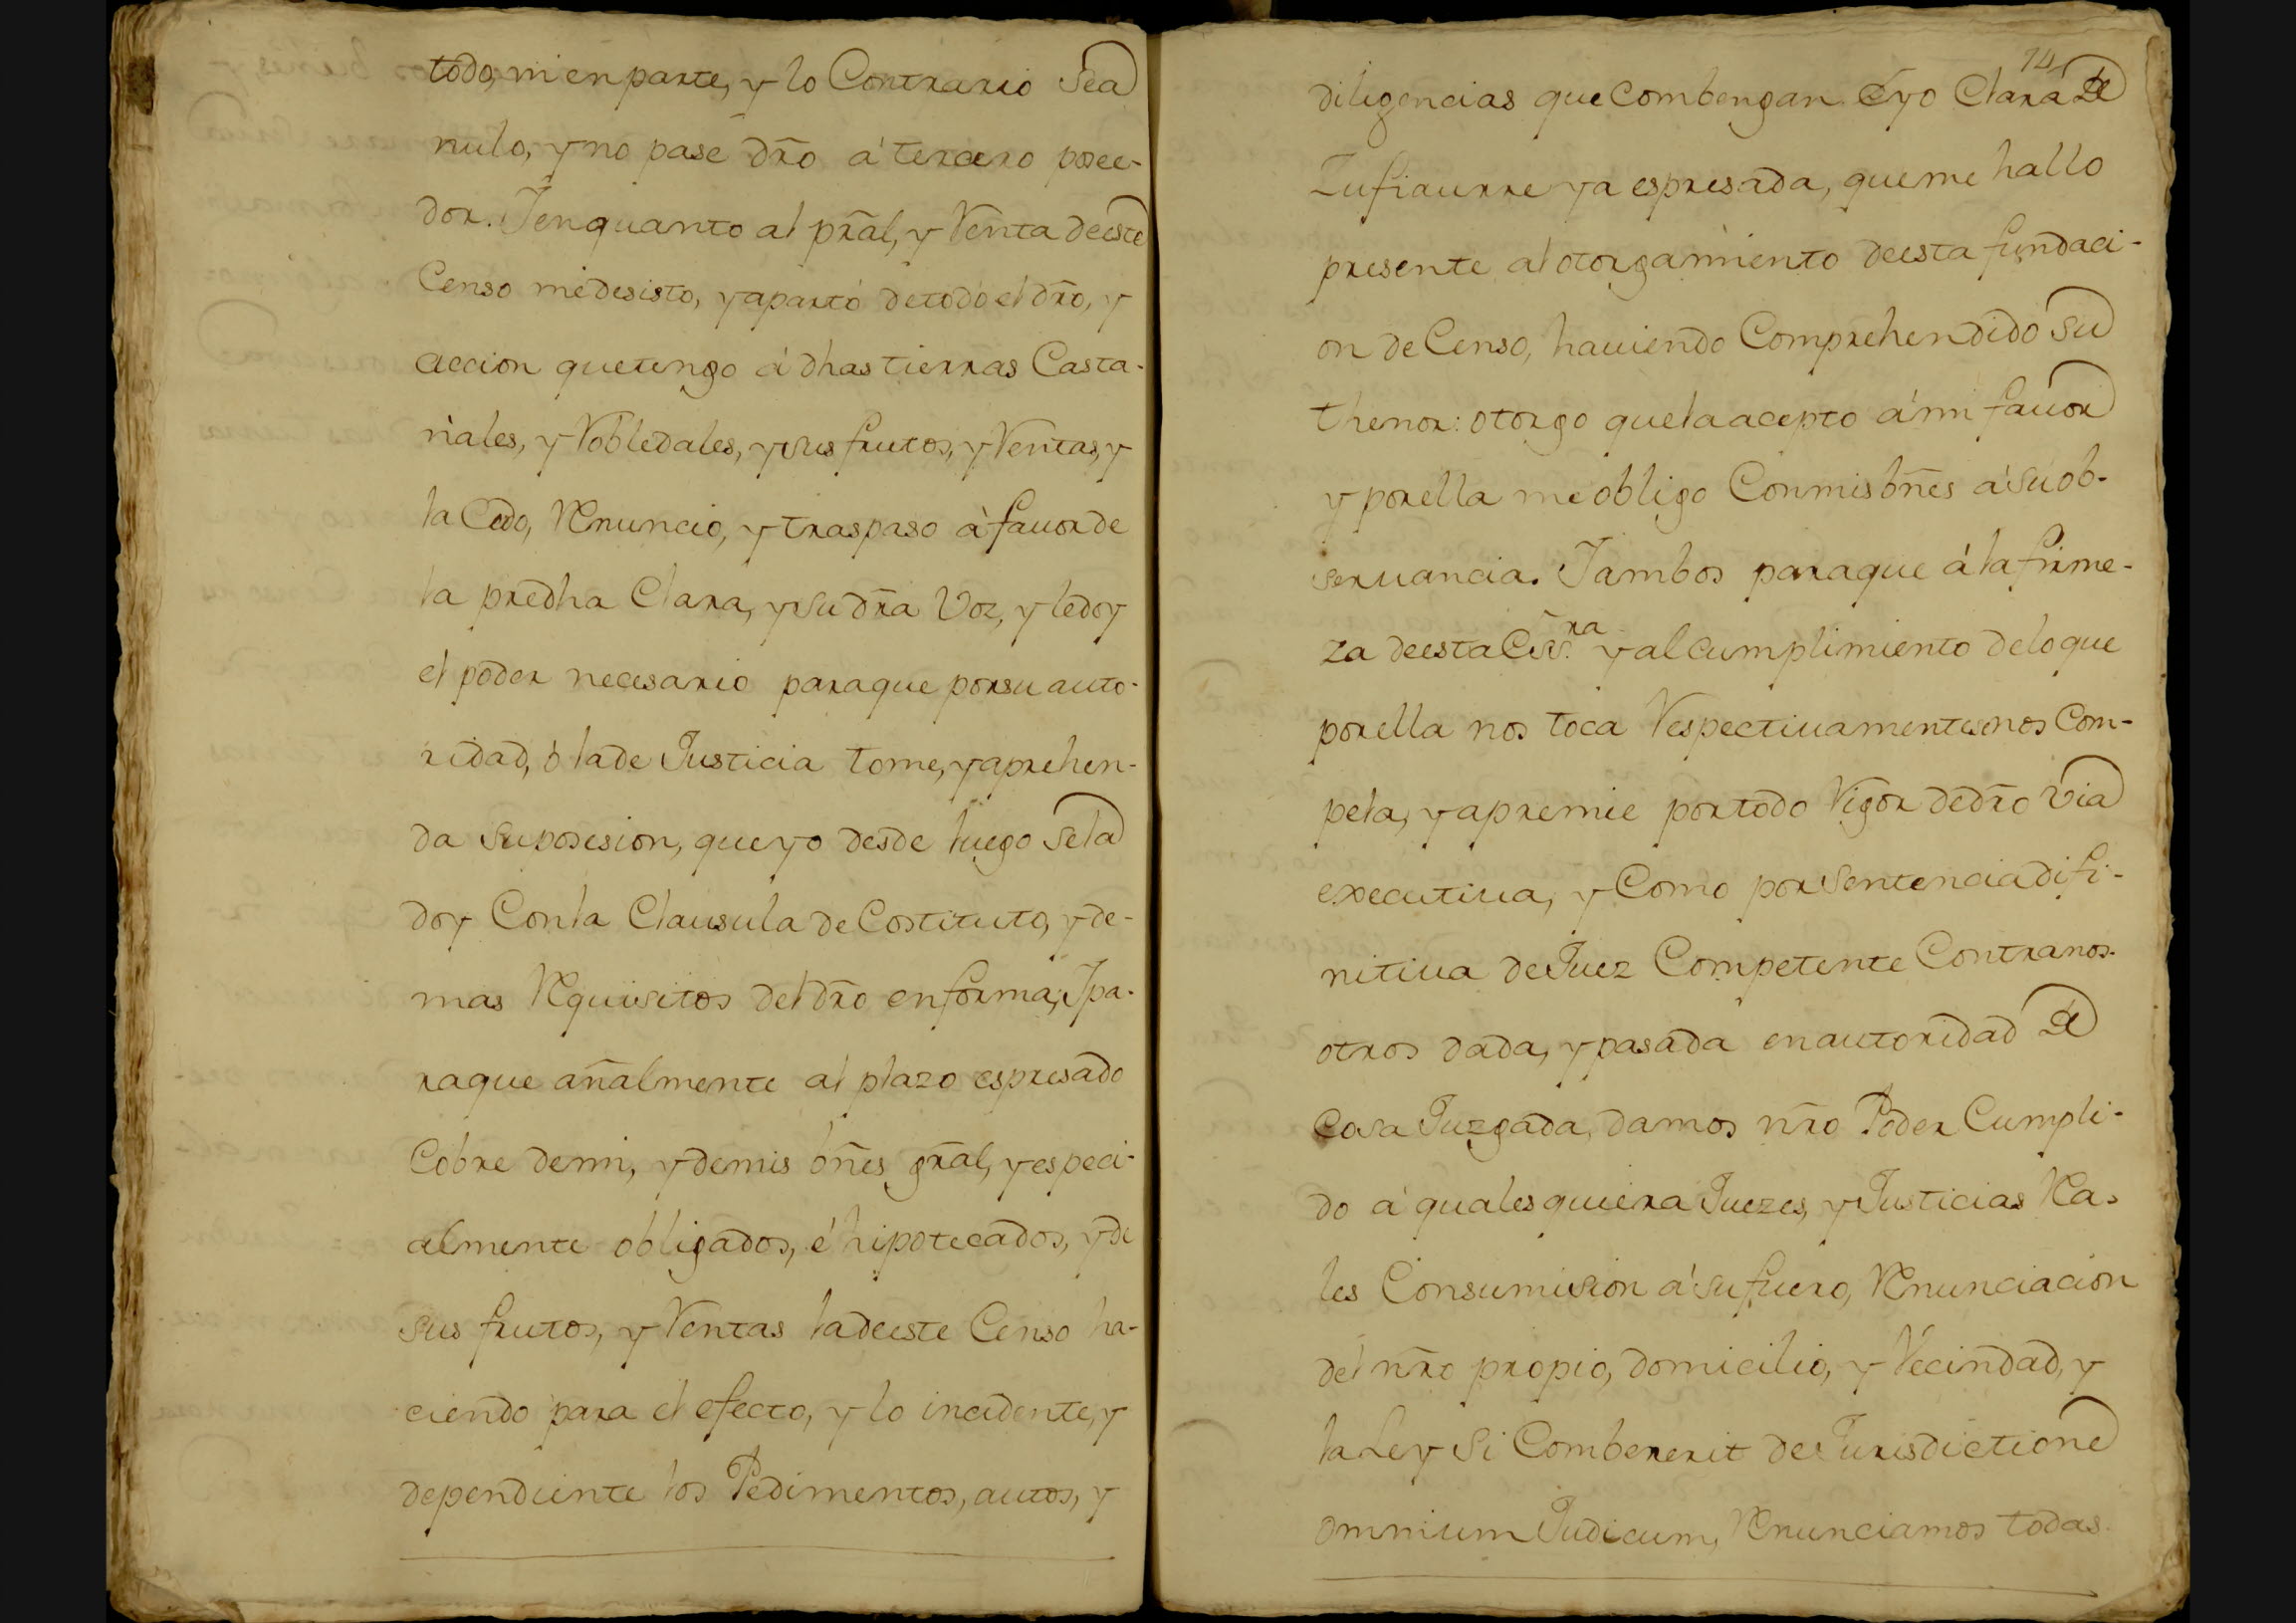 todo, ni en parte, y lo Contrario Sea
nulo, y no pase dr̃o á tercero posee-
dor. Y en quanto al pr̃al, y Renta de este
Censo me desisto, y aparto de todo el dr̃o, y
accion que tengo á dhas tierras Casta-
ñales, y Robledales, y sus frutos, y Rentas, y
la Cedo, Renuncio, y traspaso á favor de
la predha Clara, y su dr̃a Voz, y le doy
el poder necesario para que por su auto-
ridad, ó la de Justicia tome, y aprehen-
da su posesion, que yo desde luego Se la
doy Con la Clausula de Costituto, y de-
mas Requisitos del dr̃o en forma; Y pa-
ra que añalmente al plazo espresado
Cobre de mi, y de mis bñes gr̃al, y especi-
almente obligados, é hipotecados, y de
sus frutos, y Rentas la de este Censo ha-
ciendo para el efecto, y lo incidente, y
dependiente los Pedimentos, autos, y
74
diligencias que Combengan. É yo Clara de
Zufiaurre ya espresada, que me hallo
presente al otorgamiento de esta fundaci-
on de Censo, haviendo Comprehendido Su
thenor: otorgo que la acepto á mi favor
y por ella me obligo Con mis bñes á Su ob-
servancia. Y ambos para que á la firme-
za de esta Esc.ra y al Cumplimiento de lo que
por ella nos toca Respectivamente se nos Com-
pela, y apremie por todo Rigor de dr̃o Via
executiva, y Como por Sentencia difi-
nitiva de Juez Competente Contra nos-
otros dada, y pasada en autoridad de
Cosa Juzgada, damos nr̃o Poder Cumpli-
do á quales quiera Juezes, y Justicias Rea-
les Con sumision á Su fuero, Renunciacion
del nr̃o propio, domicilio, y Vecindad, y
la Ley Si Combenerit de Jurisdictione
omnium Judicum, Renunciamos todas